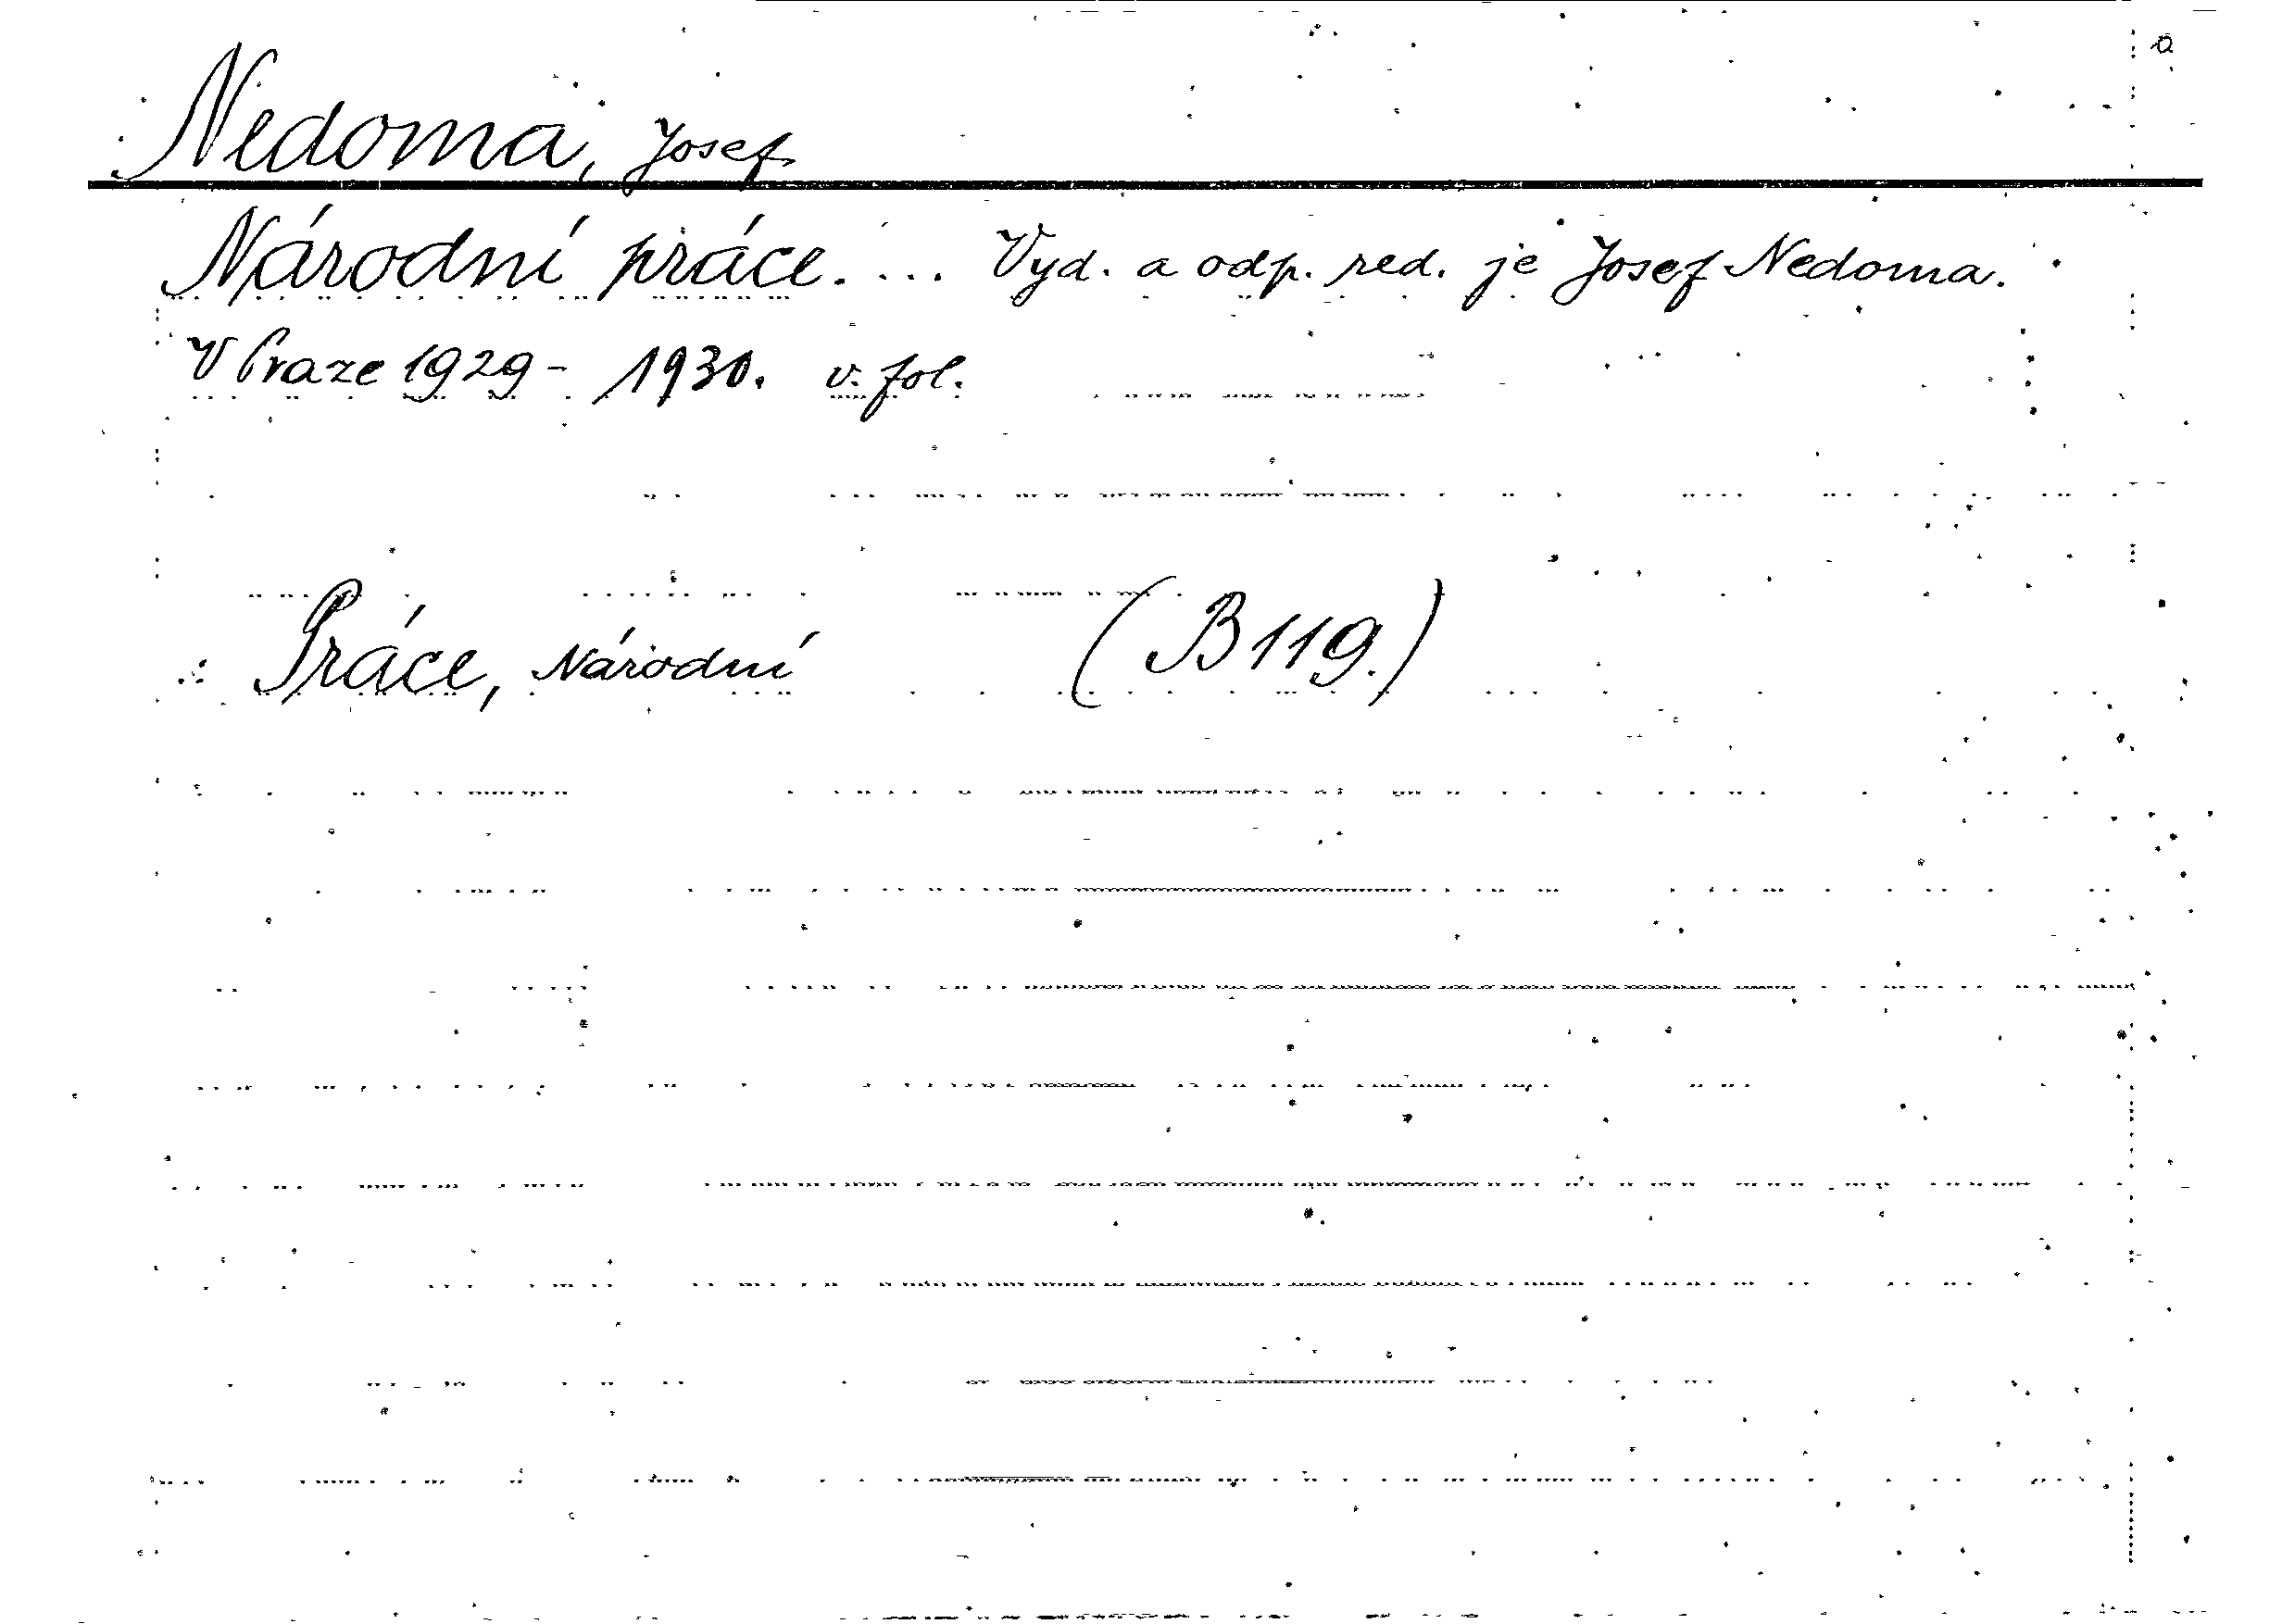 Nedoma, Josef
Národní práce. ... Vyd. a odp. red. je Josef Nedoma.
V Praze 1929- 1930. v. fol.
Práce, Národní (B 119.)